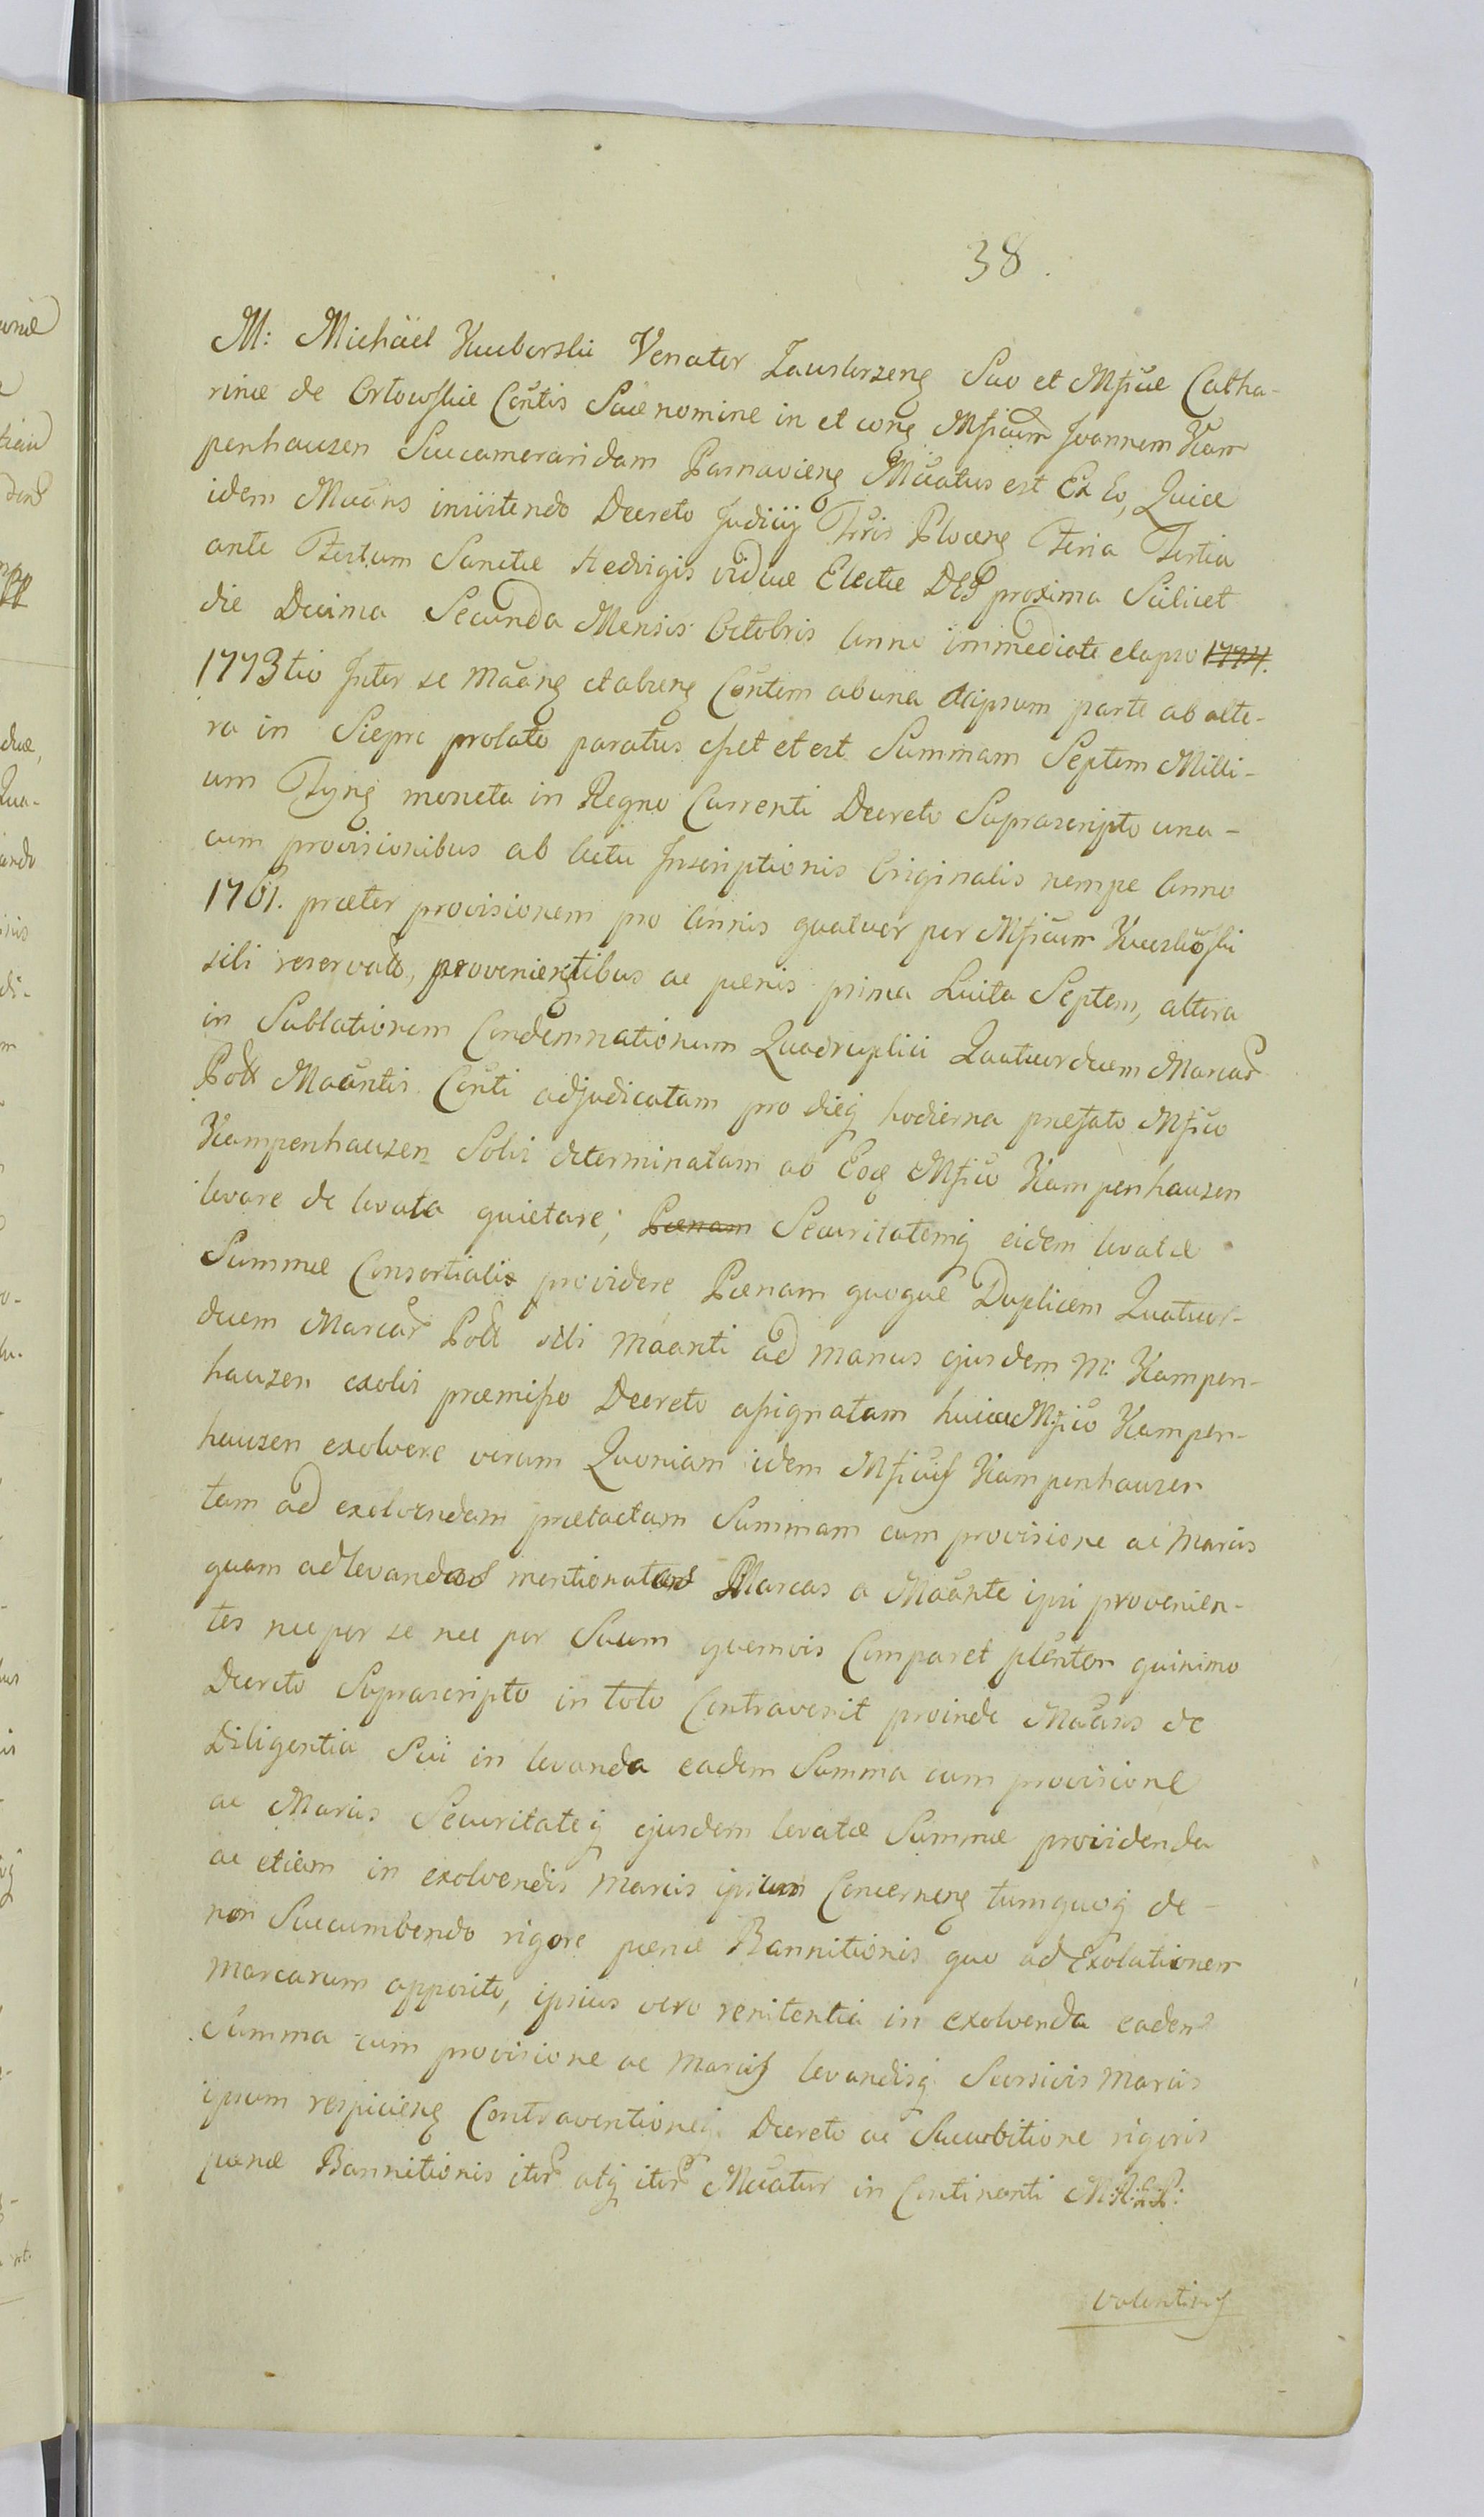 38.
M: Michäel Kucborskii Venator Zauskrzeng Suo et Mficae Catha-
rinae de Orłowskie Contis Suae nomine in et cong Mficum Joannem Kam
penhauzen Succameraridam Parnavieng Mcatus est Ex Eo, Quia
idem Mcans insistendo Decreto Judicij Trris Ploceng Feria Tertia
ante Festum Sanctae Hedvigis viduae Electae DEJ proxima Scilicet
die Decima Secunda Mensis Octobris Anno immediate elapso 1774.
1773tio Inter se Mcang et abseng Contem ab una et ipsum parte ab alte-
ra in Siepre prolato paratus esset et est Summam Septem Milli-
um Ftyng moneta in Regno Currenti Decreto Suprascripto una-
cum provisionibus ab Actu Inscriptionis Originalis nempe Anno
1761. praeter provisionem pro Annis quatuor per Mficum
sibi reservato, provenientibus ac paenis prima Luita Septem, altera
in Sublationem Condemnationum Quadruplici Quatuordecem Marcar
Poll Mcantis Conti adjudicatam pro dieq hodierna praefato Mfico
Kampenhauzen Solvi determinatam ab Eoq Mfico Kampenhauzen
levare de levata quietare; Paenam Securitatemq eidem levatae
Summae Consortialis providere Paenam quoque Duplicem Quatuor-
decem Marcar Poll sibi Mcanti ad manus ejusdem M: Kampen-
hauzen exolvi praemisso Decreto assignatam huicce Mfico Kampen-
hauzen exolvere verum Quoniam idem Mficus Kampenhauzen
tam ad exolvendam praetactam Summam cum provisione ac Marcis
quam ad levandas mentionatas Marcas a Mcante ipsi provenien-
tes nec per se nec per Suum quemvis Comparet plenten quinimo
Decreto Suprascripto in toto Contravenit proinde Mcans de
Diligentia Sui in levanda eadem Summa cum provisione
ac Marcis Securitateq ejusdem levatae Summae providenda
ac etiam in exolvendis Marcis ipsum Concerneng tumquoq de
non Succumbendo rigore paenae Bannitionis quo ad Exolutionem
Marcarum apposito, ipsius vero renitentia in exolvenda eadem
Summa cum provisione ac Marcis levandisq Seorsivis Marcis
ipsum respicieng Contraventioneq Decreto ac Succubitione rigoris
paenae Bannitionis iter atq iter Mcatur in Continenti M:A:L:P:
Valentinus